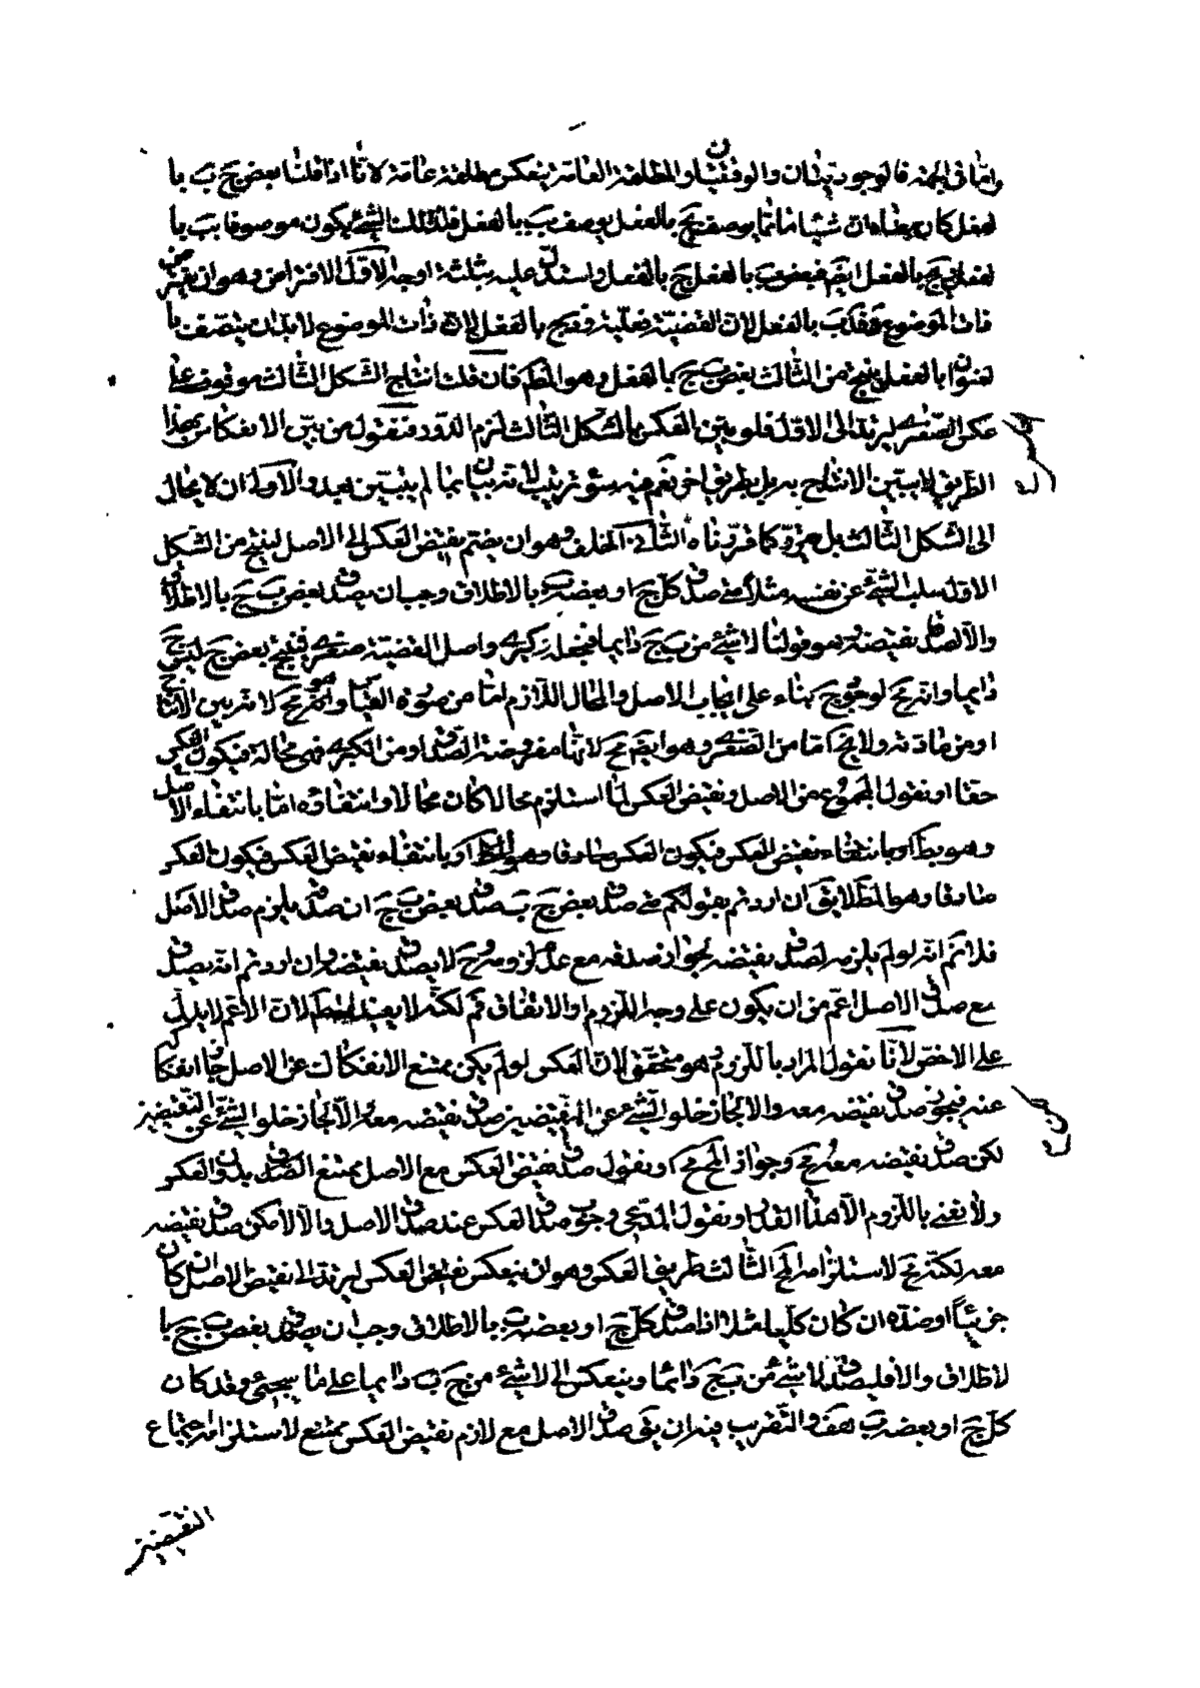 وامّا فى الجهة فالوجوديتان والوقتيتان والمطلقة العامّة ينعكس مطلقة عامّة لانّا اذا قلنا بعض ج ب با
لفعل كان معناه ان شيئا ما مما يوصف بج بالفعل يوصف بب بالفعل فلذلك الشىء يكون موصوفا بب با
لفعل وبج بالفعل ايضا فبعض ب بالفعل ج بالفعل واستدل عليه بثلثة اوجه الاوّل الافتراض وهو ان يفرض
ذات الموضوع د فد ب بالفعل لان القضيّة فعليّة ود ج بالفعل لان ذات الموضوع لا بد ان يتصف با
لعنوان بالفعل ينتج من الثالث بعض ب ج بالفعل وهو المط فان قلت انتاج الشكل الثالث موقوف على
عكس الصغرى ليرتد الى الاوّل فلو بيّن العكس بالشكل الثالث لزم الدّور فنقول من بيّن الانعكاس بهذا
الطريق لا يبيّن الانتاج به بل بطريق اخر نعم فيه سوء ترتيب لانه بيان بما لم يتبيّن بعد والاولى ان لا يحال
الى الشكل الثالث بل كما قررناه الثانى الخلف وهو ان يضم نقيض العكس الى الاصل لينتج من الشكل
الاوّل سلب الشىء عن نفسه مثلا متى صدق كل ج او بعضه ب بالاطلاق وجب ان يصدق بعض ب ج بالاطلاق
والّا لصدق نقيضه وهو قولنا لا شىء من ب ج دايما فنجعله كبرى واصل القضيّة صغرى فينتج بعض ج ليس ج
دايما وانه مح لوجود ج بناء على ايجاب الاصل والمحال اللازم امّا من صورة القياس وهو مح لانه بيّن الانتاج
او من مادته ولا يخ امّا من الصغرى وهو ايضا مح لانها مفروضة الصدق او من الكبرى فهى محالة فيكون العكس
حقا او نقول المجموع من الاصل ونقيض العكس لمّا استلزم محالا كان محالا وانتفاؤه امّا بانتفاء الاصل
وهو بط او بانتفاء نقيض العكس فيكون العكس صادقا وهو المط او بانتفاء نقيض العكس فيكون العكس
صادقا وهو المط لا يقال ان اردتم بقولكم متى صدق بعض ج ب صدق بعض ب ج ان صدقه يلزم صدق الاصل
فلا نم انه لو لم يلزمه لصدق نقيضه لجواز صدقه مع عدم لزومه وح لا يصدق نقيضه وان اردتم انه يصدق
مع صدق الاصل اعم من ان يكون على وجه اللزوم او الاتفاق فم لكنه لا يفيد المط لان الاعم لا يدل
على الاخص لانّا نقول المراد باللزوم وهو متحقق لان العكس لو لم يكن ممتنع الانفكاك عن الاصل جاز انفكاكه
عنه فيجوز صدق نقيضه معه والا لجاز خلو الشىء عن النقيضين صدق نقيضه معه والّا لجاز خلو الشىء عن النقيضين
لكن صدق نقيضه معه مح وجواز المح مح او نقول صدق نقيض العكس مع الاصل ممتنع الصدق بدون العكس
ولا نعنى باللزوم الّا هذا القدر او نقول المدّعى وجوب صدق العكس عند صدق الاصل والّا لامكن صدق نقيضه
معه لكنّه مح لاستلزامه المح الثالث طريق العكس وهو ان ينعكس نقيض العكس ليرتد الى نقيض الاصل ان كان
جزئيّا او ضدّه ان كان كليّا مثلا اذا صدق كل ج او بعضه ب بالاطلاق وجب ان يصدق بعض ب ج با
لاطلاق والا فليصدق لا شىء من ب ج دائما وينعكس الى لا شىء من ج ب دايما على ما سيجىء وقد كان
كل ج او بعضه ب هف والتقريب فيه ان يق صدق الاصل مع لازم نقيض العكس ممتنع لاستلزامه اجتماع
النقيضين